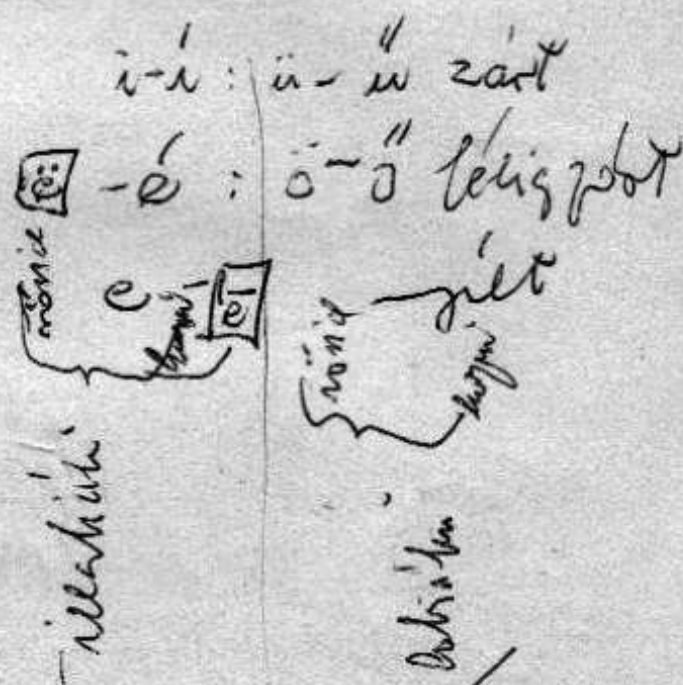 i-í : ü-ű zárt
ë -é : ö-ő félig zárt
e - ē nyílt
rövid hosszú rövid hosszú
illabiális labiális